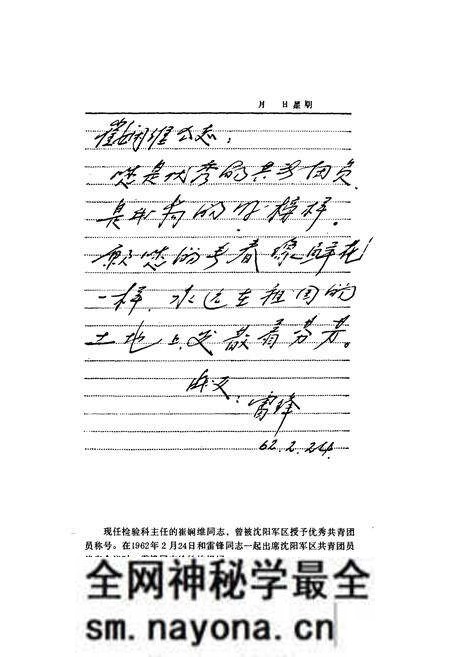 月 日星期
崔娴维同志:
您是优秀的共青团员
是我们的好榜样。
愿您的青春像鲜花
一样,永远在祖国的
土地上发散着芬芳。
战友:
雷锋
62.2.24.
现任检验科主任的崔娴维同志,曾被沈阳军区授予优秀共青团
员称号。在1962年2月24日和雷锋同志一起出席沈阳军区共青团员
全网神秘学最全
sm.nayona.cn